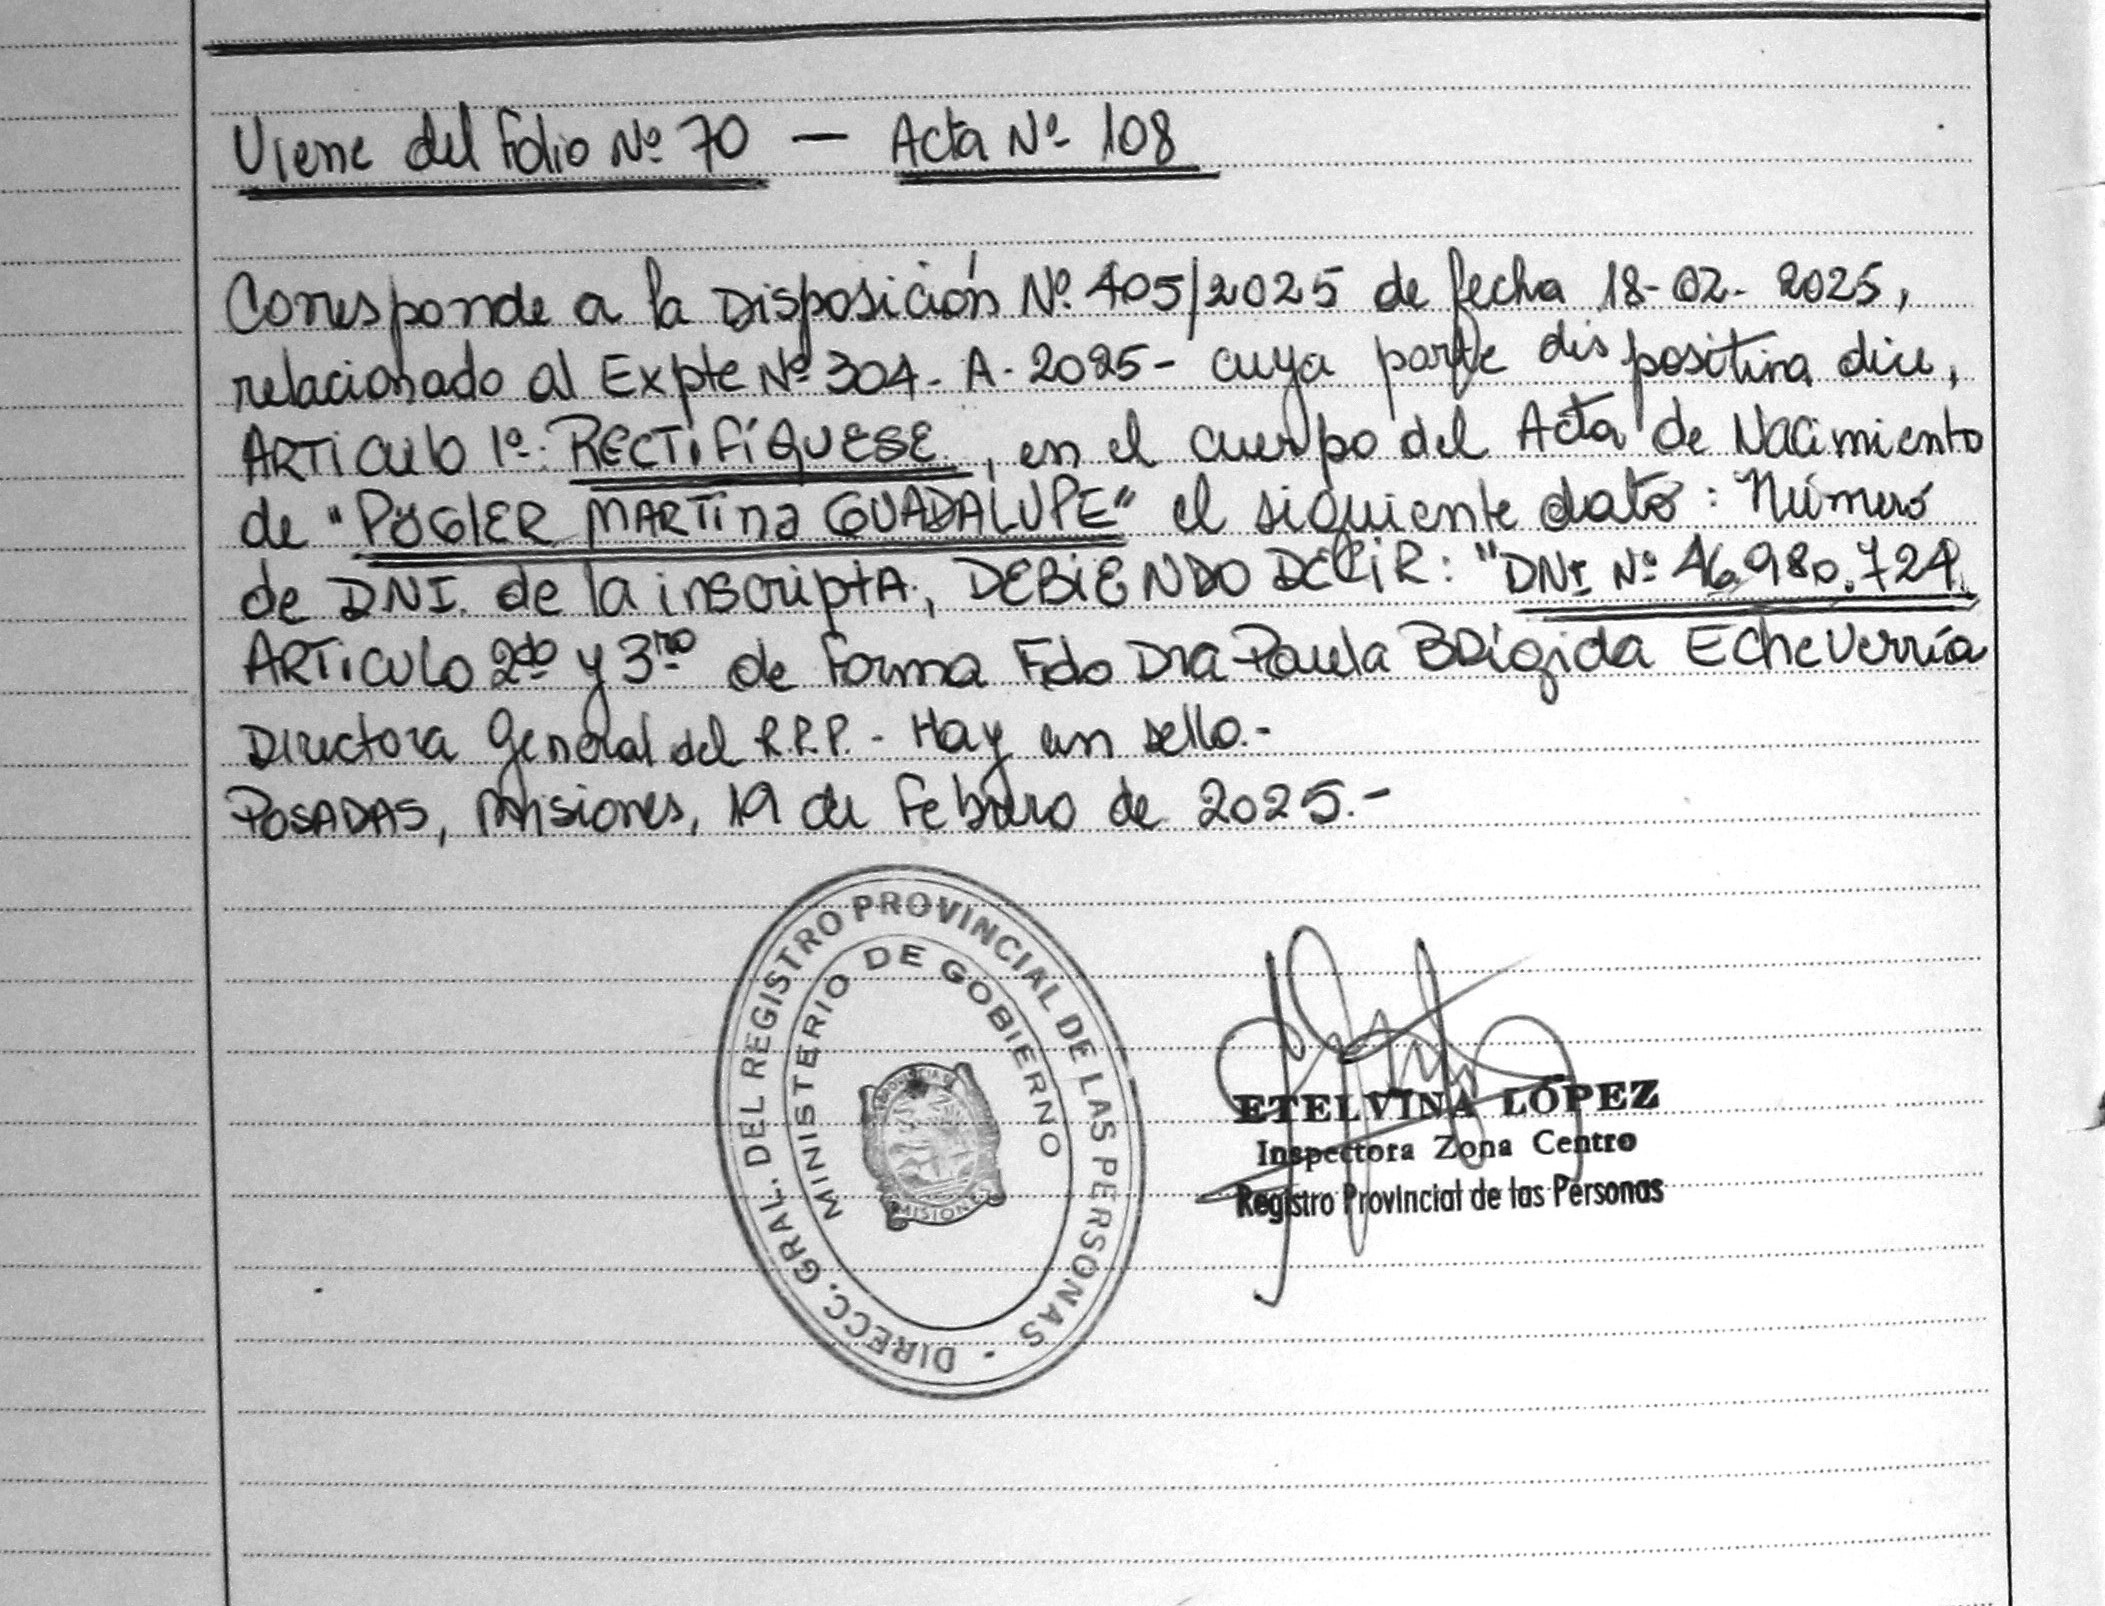 Viene del folio Nº 70 — Acta Nº 108
Corresponde a la Disposición Nº 405/2025 de fecha 18-02-2025,
relacionado al Expte Nº 304-A-2025- cuya parte dispositiva dice,
ARTICULO 1º: RECTIFÍQUESE, en el cuerpo del Acta de Nacimiento
de "PÖGLER MARTINA GUADALUPE" el siguiente dato: Número
de DNI. de la inscripta, DEBIENDO DECIR: "DNI Nº 46.980.724.
ARTICULO 2do y 3ro de forma Fdo Dra Paula Brigida Echeverría
Directora General del R.R.P. - Hay un sello.-
POSADAS, Misiones, 19 de Febrero de 2025.-
DIRECC. GRAL. DEL REGISTRO PROVINCIAL DE LAS PERSONAS
MINISTERIO DE GOBIERNO
PROVINCIA DE
MISIONES
ETELVINA LÓPEZ
Inspectora Zona Centro
Registro Provincial de las Personas